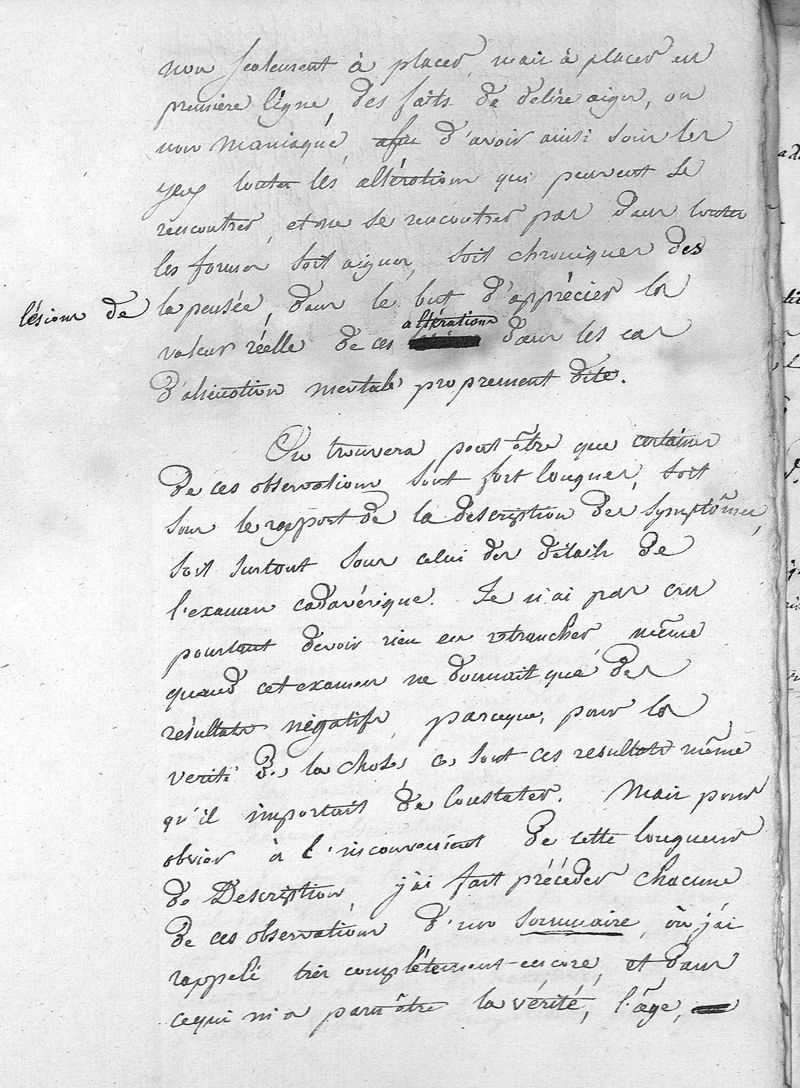 non seulement à placer, mais à placer en
première ligne, des faits de délire aigu, ou
non maniaque, afin d'avoir ainsi sous les
yeux toutes les altérations qui peuvent se
rencontrer, et ne se rencontrer pas dans toutes
les formes soit aigues, soit chroniques des
lésions de la pensée, dans le but d'apprécier la
altérations
valeur réelle de ces dans les cas
d'aliénation mentale proprement dite.
On trouvera peut être que certaines
de ces observations sont fort longues, soit
sous le rapport de la description des symptômes,
soit surtout sous celui des détails de
l'examen cadavérique. Je n'ai pas cru
pourtant devoir rien en retrancher même
quand cet examen ne donnait que des
résultats négatifs, parceque, pour la
verité de la chose, ce sont ces resultats même
qu'il importait de constater. Mais pour
obvier à l'inconvenient de cette longueur
de Description, j'ai fait précéder chacune
de ces observations d'un sommaire, où j'ai
rappelé très complètement encore, et dans
ce qui m'a paru être la vérité, l'âge,